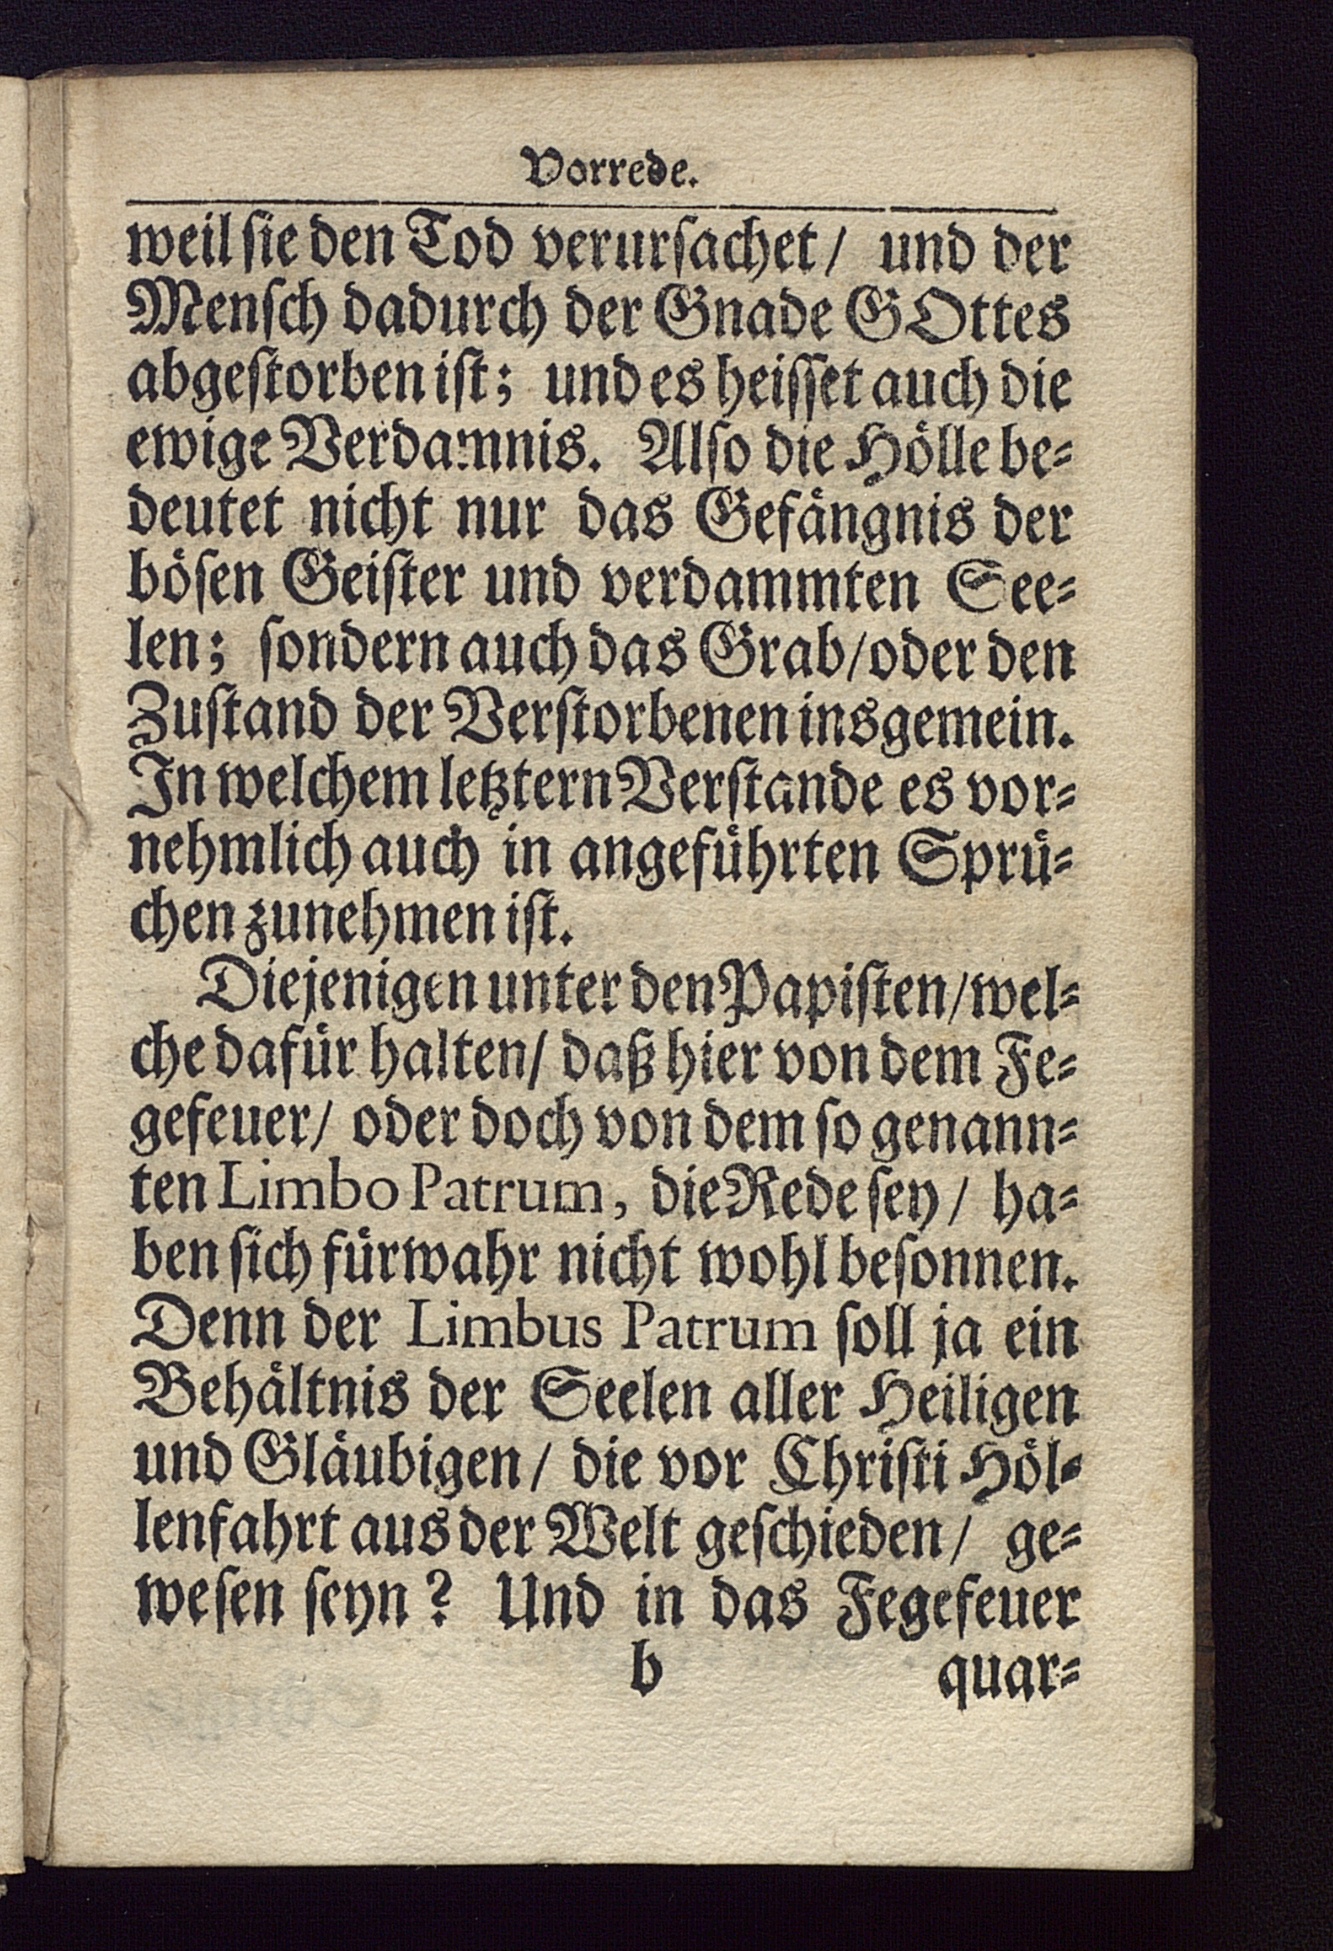 Vorrede.
weil sie den Tod verursachet/ und der
Mensch dadurch der Gnade GOttes
abgestorben ist; und es heisset auch die
ewige Verdamnis. Also die Hölle be-
deutet nicht nur das Gefängnis der
bösen Geister und verdammten See-
len; sondern auch das Grab/oder den
Zustand der Verstorbenen insgemein.
In welchem letztern Verstande es vor-
nehmlich auch in angeführten Sprü-
chen zunehmen ist.
Diejenigen unter den Papisten/wel-
che dafür halten/ daß hier von dem Fe-
gefeuer/ oder doch von dem so genann-
ten Limbo Patrum, die Rede sey/ ha-
ben sich fürwahr nicht wohl besonnen.
Denn der Limbus Patrum soll ja ein
Behältnis der Seelen aller Heiligen
und Gläubigen/ die vor Christi Höl-
lenfahrt aus der Welt geschieden/ ge-
wesen seyn? Und in das Fegefeuer
b quar-